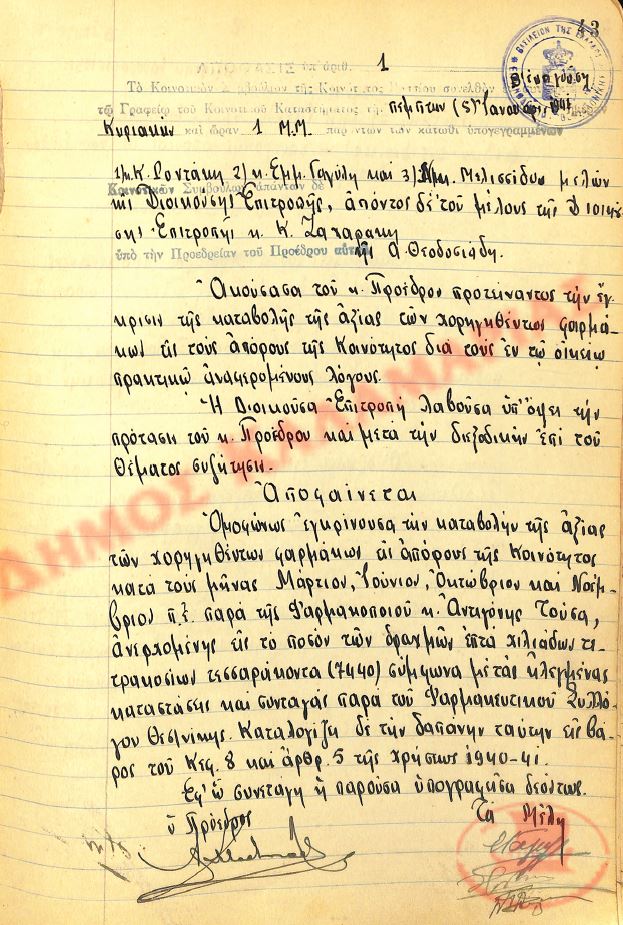 43
ΒΑΣΙΛΕΙΟΝ ΤΗΣ ΕΛΛΑΔΟΣ
ΑΠΟΦΑΣΙΣ ὑπ' ἀριθ. 1
Τὸ Κοινοτικὸν Συμβούλιον τῆς Κοινότητος συνελθὸν
τῷ Γραφείῳ τοῦ Κοινοτικοῦ Καταστήματος τὴν πέμπτην (5) Ἰανουαρίου 1941
Κυριακὴν καὶ ὥραν 1 Μ.Μ. παρόντων τῶν κάτωθι ὑπογεγραμμένων
1) κ. Κ. Ροντάκη 2) κ. Εμμ. Γαγύλη καὶ 3) Νικ. Μελισσίδου μελῶν
Κοινοτικῶν Συμβούλων ἀπάντων δὲ
τῆς Διοικούσης Ἐπιτροπῆς, ἀπόντος δὲ τοῦ μέλους τῆς Διοικού
σης Ἐπιτροπῆς κ. Κ. Ζαχαράκη
ὑπὸ τὴν Προεδρείαν τοῦ Προέδρου αὐτῆς Α. Θεοδοσιάδη.
Ἀκούσασα τοῦ κ. Προέδρου προτείναντος τὴν ἔγ
κρισιν τῆς καταβολῆς τῆς ἀξίας τῶν χορηγηθέντων φαρμά-
κων εἰς τοὺς ἀπόρους τῆς Κοινότητος διὰ τοὺς ἐν τῷ οἰκείῳ
πρακτικῷ ἀναφερομένους λόγους.
Ἡ Διοικοῦσα Ἐπιτροπὴ λαβοῦσα ὑπ' ὄψει τὴν
πρότασιν τοῦ κ. Προέδρου καὶ μετὰ τὴν διεξοδικὴν ἐπὶ τοῦ
θέματος συζήτησιν.
Ἀποφαίνεται
Ὁμοφώνως ἐγκρίνουσα τὴν καταβολὴν τῆς ἀξίας
τῶν χορηγηθέντων φαρμάκων εἰς ἀπόρους τῆς Κοινότητος
κατὰ τοὺς μῆνας Μάρτιον, Ἰούνιον, Ὀκτώβριον καὶ Νοέμ-
βριον π.ἔ. παρὰ τῆς Φαρμακοποιοῦ κ. Ἀντιγόνης Τούσα,
ἀνερχομένης εἰς τὸ ποσὸν τῶν δραχμῶν ἑπτὰ χιλιάδων τε-
τρακοσίων τεσσαράκοντα (7440) σύμφωνα μὲ τὰς ἠλεγμένας
καταστάσεις καὶ συνταγὰς παρὰ τοῦ Φαρμακευτικοῦ Συλλό-
γου Θεσ/νίκης. Καταλογίζει δὲ τὴν δαπάνην ταύτην εἰς βά-
ρος τοῦ Κεφ. 8 καὶ ἄρθρ. 5 τῆς χρήσεως 1940-41.
Ἐφ' ᾧ συνετάγη ἡ παροῦσα ὑπογραφεῖσα δεόντως.
ὁ Πρόεδρος Τὰ Μέλη
ΔΗΜΟΣ ΚΑΛΑΜΑΡΙΑΣ